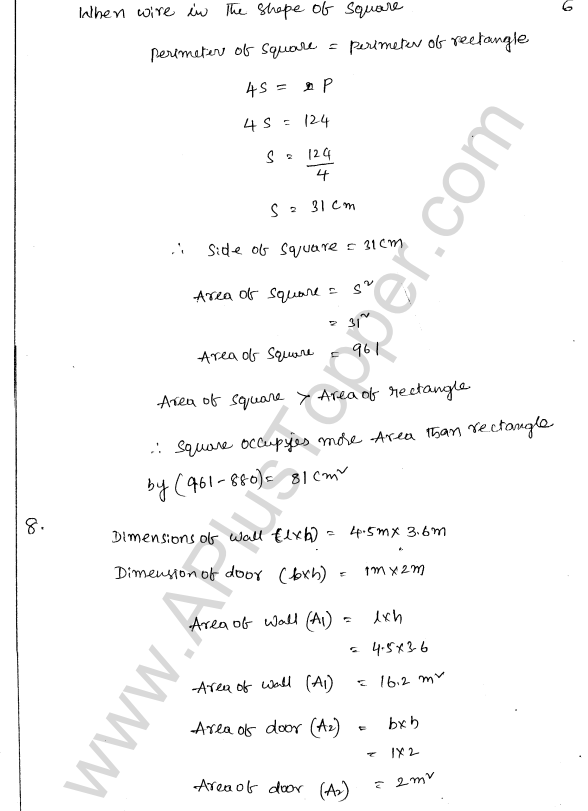 When wire in the shape of square 6
perimeter of square = perimeter of rectangle
4S = P
4S = 124
S = 124/4
S = 31 cm
∴ Side of square = 31 cm
Area of square = S²
= 31²
Area of square = 961
Area of square > Area of rectangle
∴ square occupies more Area than rectangle
by (961 - 880) = 81 cm²
8. Dimensions of wall (l×h) = 4.5m × 3.6m
Dimension of door (b×h) = 1m × 2m
Area of wall (A1) = l×h
= 4.5×3.6
Area of wall (A1) = 16.2 m²
Area of door (A2) = b×h
= 1×2
Area of door (A2) = 2m²
www.APlusTopper.com